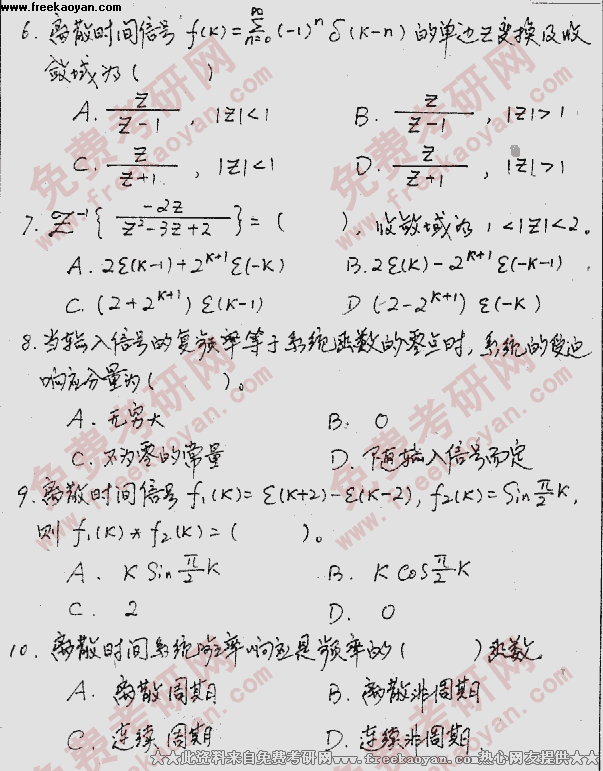 www.freekaoyan.com
6. 离散时间信号 f(k)=∑_{n=0}^{∞}(-1)^n δ(k-n) 的单边Z变换及收
敛域为( )
A. z/(z-1), |z|<1 B. z/(z-1), |z|>1
C. z/(z+1), |z|<1 D. z/(z+1), |z|>1
7. Z^{-1}{ -2z/(z²-3z+2) }=( ), 收敛域为 1<|z|<2。
A. 2ε(k-1)+2^{k+1}ε(-k) B. 2ε(k)-2^{k+1}ε(-k-1)
C. (2+2^{k+1})ε(k-1) D (-2-2^{k+1})ε(-k)
8. 当输入信号的复频率等于系统函数的零点时,系统的受迫
响应分量为( )。
A. 无穷大 B. 0
C. 不为零的常量 D. 随输入信号而定
9. 离散时间信号 f₁(k)=ε(k+2)-ε(k-2), f₂(k)=Sin π/2 k,
则 f₁(k)*f₂(k)=( )。
A. k Sin π/2 k B. k cos π/2 k
C. 2 D. 0
10. 离散时间系统频率响应是频率的( )函数
A. 离散周期 B. 离散非周期
C. 连续周期 D. 连续非周期
★★此资料来自免费考研网www.freekaoyan.com热心网友提供★★